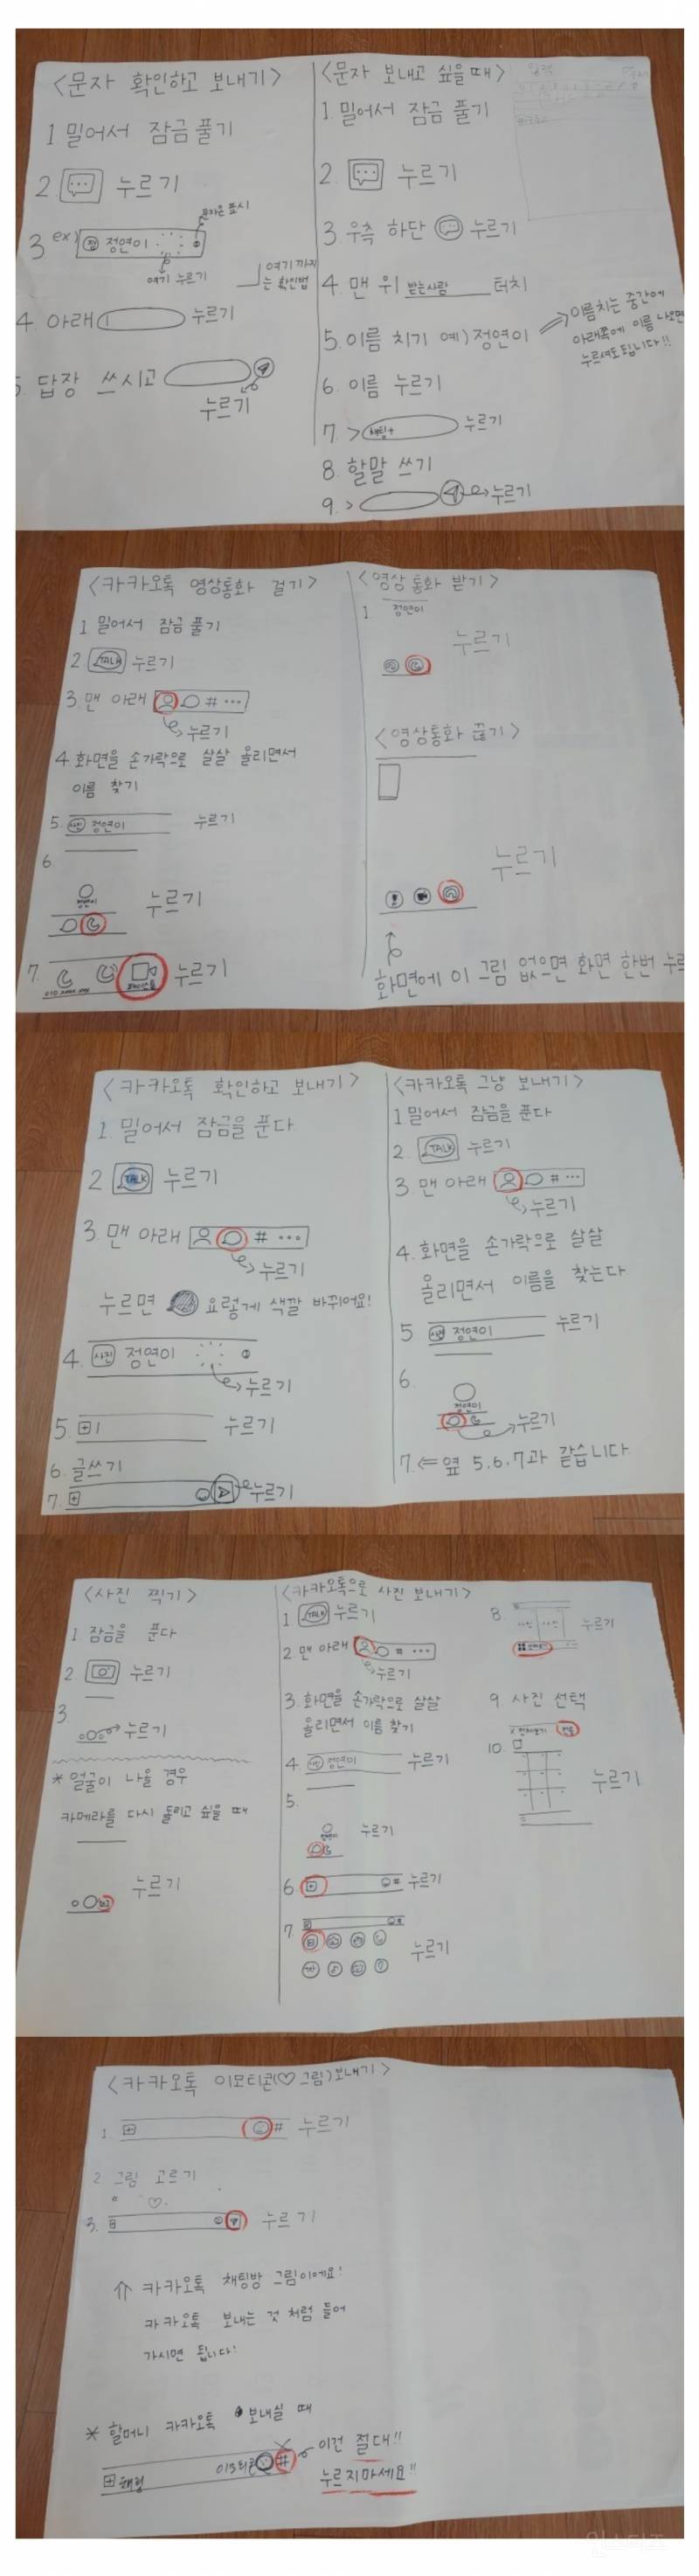 <문자 확인하고 보내기>
1 밀어서 잠금 풀기
2 누르기
문자온 표시
3 ex) 정 정연이
여기 누르기
여기까지
는 확인법
4. 아래 누르기
5. 답장 쓰시고
누르기
<문자 보내고 싶을 때>
1. 밀어서 잠금 풀기
2. 누르기
3. 우측 하단 누르기
4. 맨 위 받는사람 터치
5. 이름 치기 예) 정연이
이름치는 중간에
아래쪽에 이름 나오면
누르셔도 됩니다!!
6. 이름 누르기
7. > 채팅+ 누르기
8. 할말 쓰기
9. > 누르기
<카카오톡 영상통화 걸기>
1 밀어서 잠금 풀기
2 TALK 누르기
3. 맨 아래 # ...
누르기
4. 화면을 손가락으로 살살 올리면서
이름 찾기
5. 사진 정연이 누르기
6.
정연이
누르기
7. 누르기
<영상 통화 받기>
1. 정연이
누르기
<영상통화 끊기>
누르기
화면에 이 그림 없으면 화면 한번 누르
<카카오톡 확인하고 보내기>
1. 밀어서 잠금을 푼다
2 TALK 누르기
3. 맨 아래 # ...
누르기
누르면 요렇게 색깔 바뀌어요!
4. 사진 정연이
누르기
5. + 누르기
6. 글쓰기
7. + 누르기
<카카오톡 그냥 보내기>
1 밀어서 잠금을 푼다
2. TALK 누르기
3. 맨 아래 # ...
누르기
4. 화면을 손가락으로 살살
올리면서 이름을 찾는다
5 사진 정연이 누르기
6.
정연이
누르기
7. ⇐ 옆 5.6.7과 같습니다
<사진 찍기>
1. 잠금을 푼다
2. 누르기
3.
누르기
* 얼굴이 나올 경우
카메라를 다시 돌리고 싶을 때
누르기
<카카오톡으로 사진 보내기>
1 TALK 누르기
2 맨 아래 # ...
누르기
3. 화면을 손가락으로 살살
올리면서 이름 찾기
4. 사진 정연이 누르기
5.
정연이
누르기
6 + # 누르기
7
누르기
8. 누르기
전체보기
9. 사진 선택
전체보기 전송
10. 누르기
<카카오톡 이모티콘(♡그림)보내기>
1. + # 누르기
2 그림 고르기
♡
3. 누르기
⇑ 카카오톡 채팅방 그림이에요!
카카오톡 보내는 것 처럼 들어
가시면 됩니다!
* 할머니 카카오톡 보내실 때
+ 채팅 이모티콘 #
이건 절대!!
누르지마세요!!